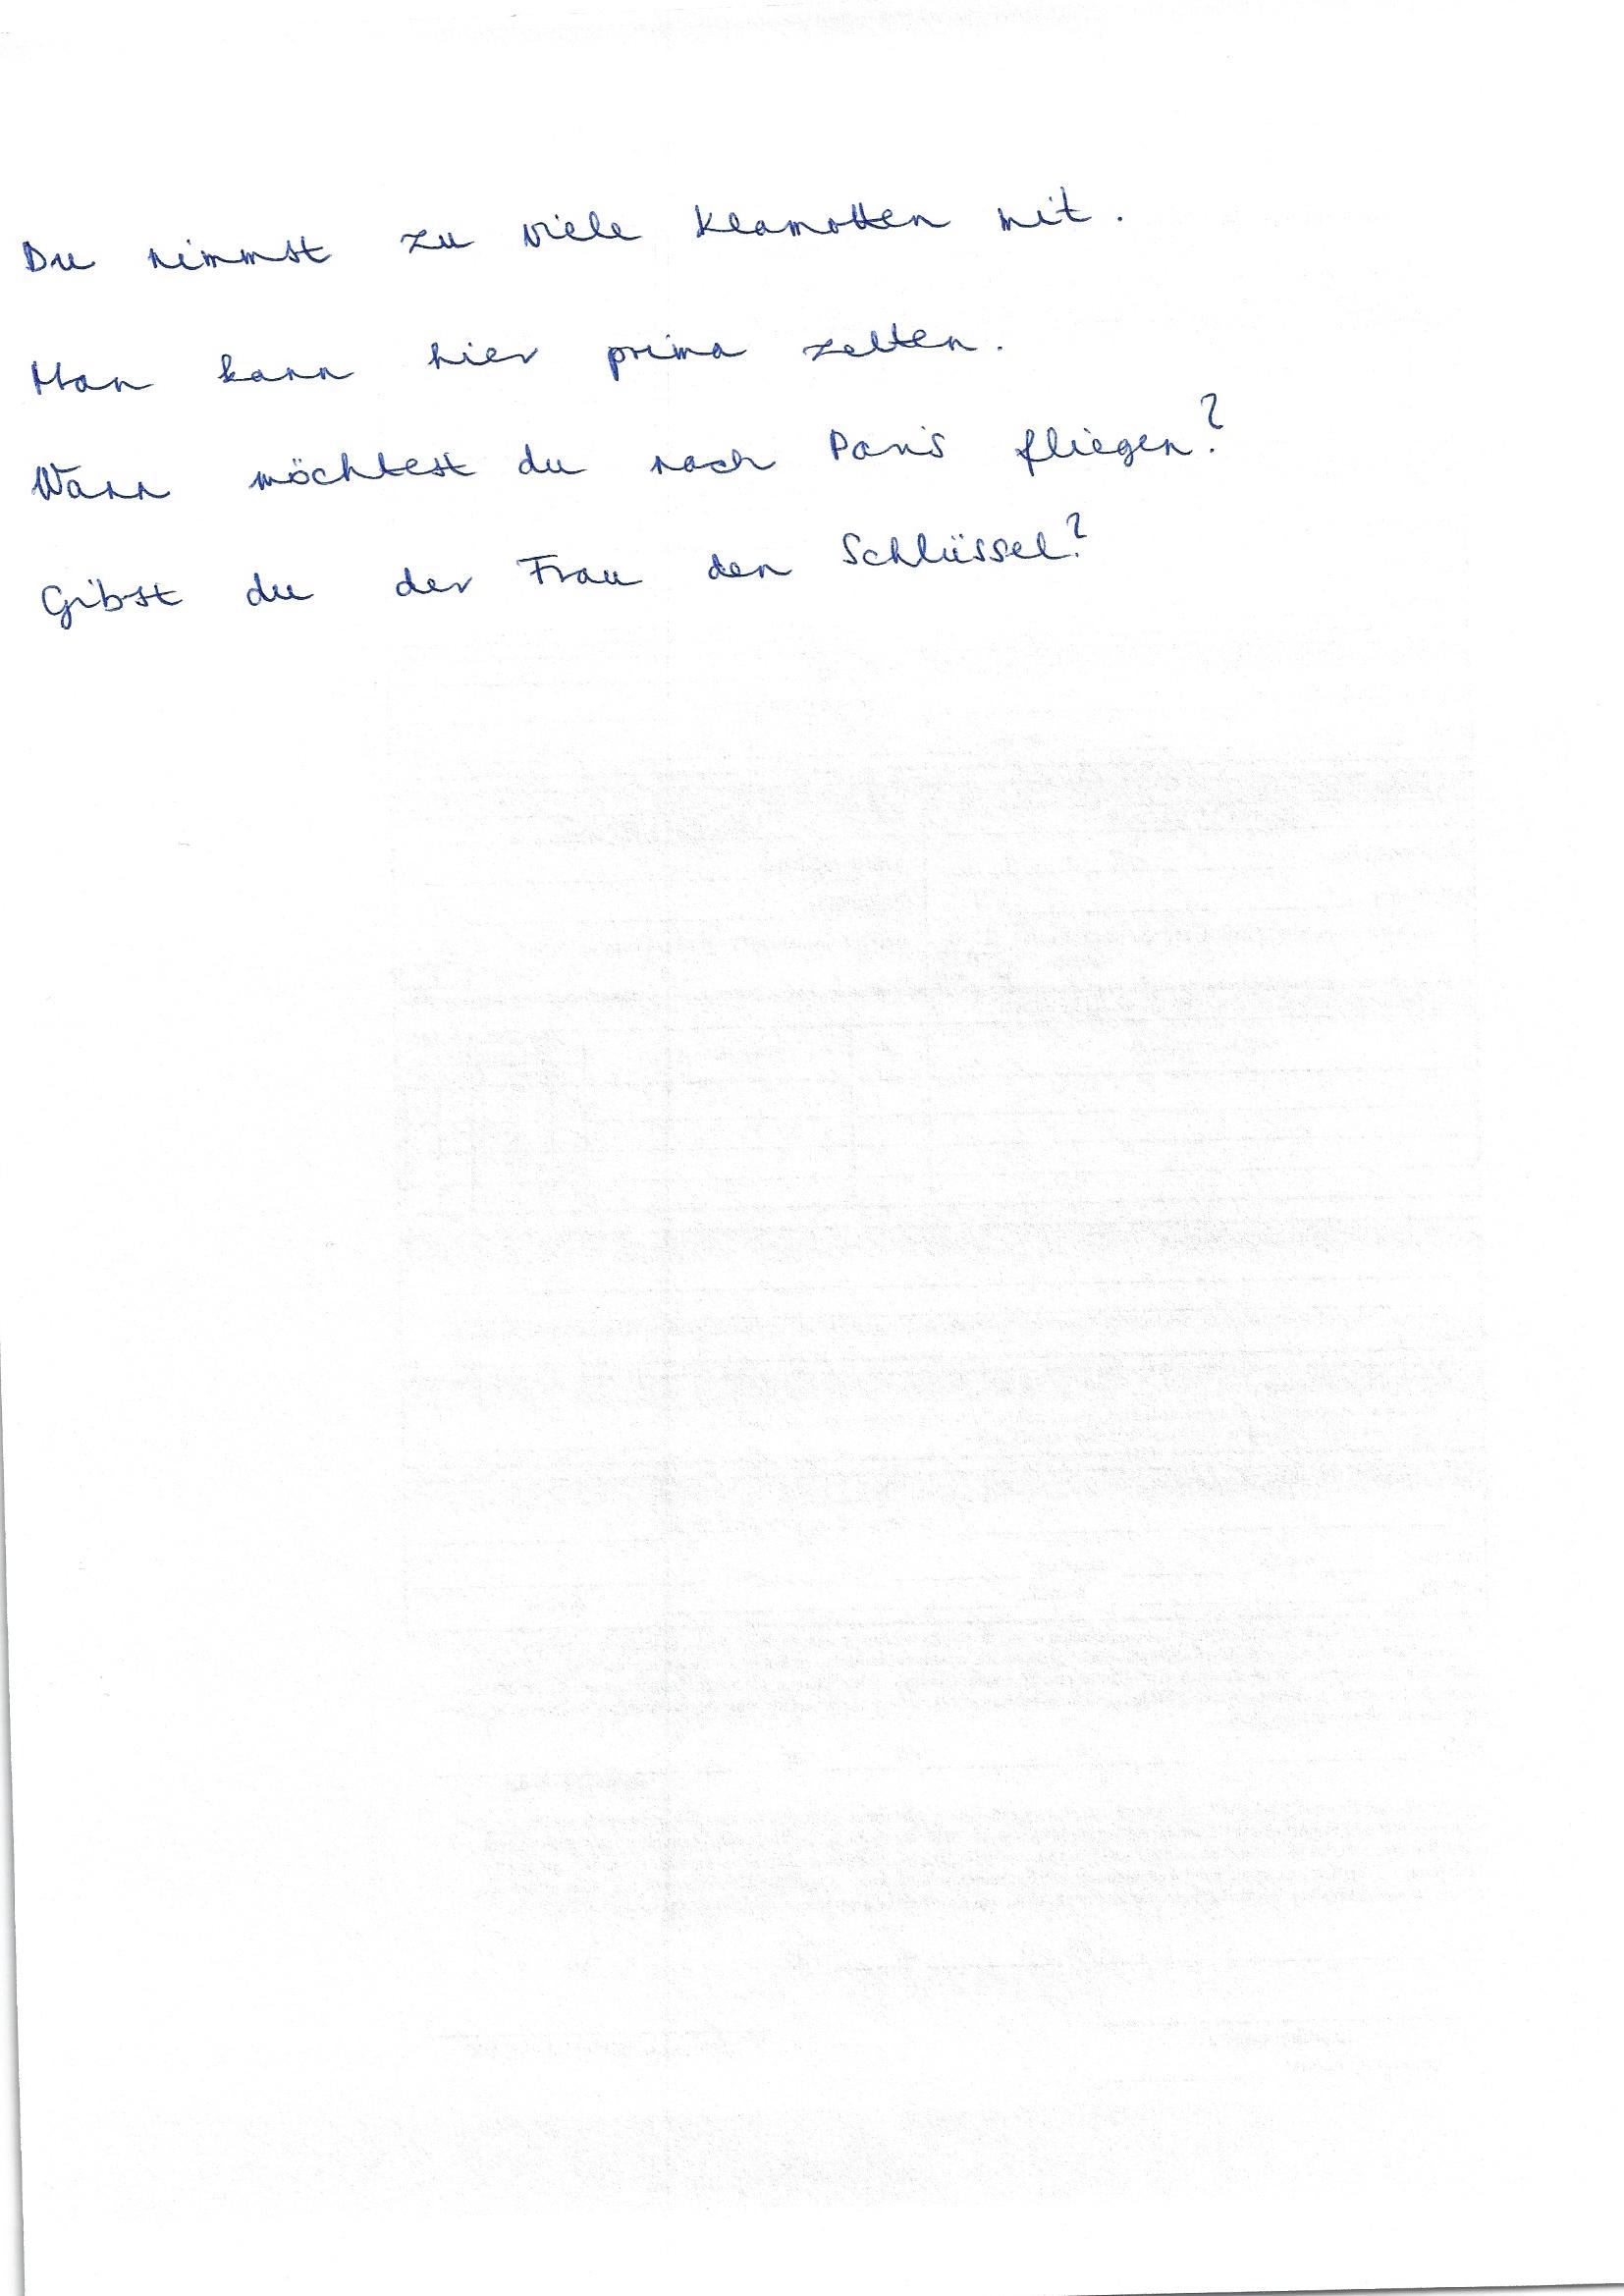 Du nimmst zu viele Klamotten mit.
Man kann hier prima zelten.
Wann möchtest du nach Paris fliegen?
Gibst du der Frau den Schlüssel?